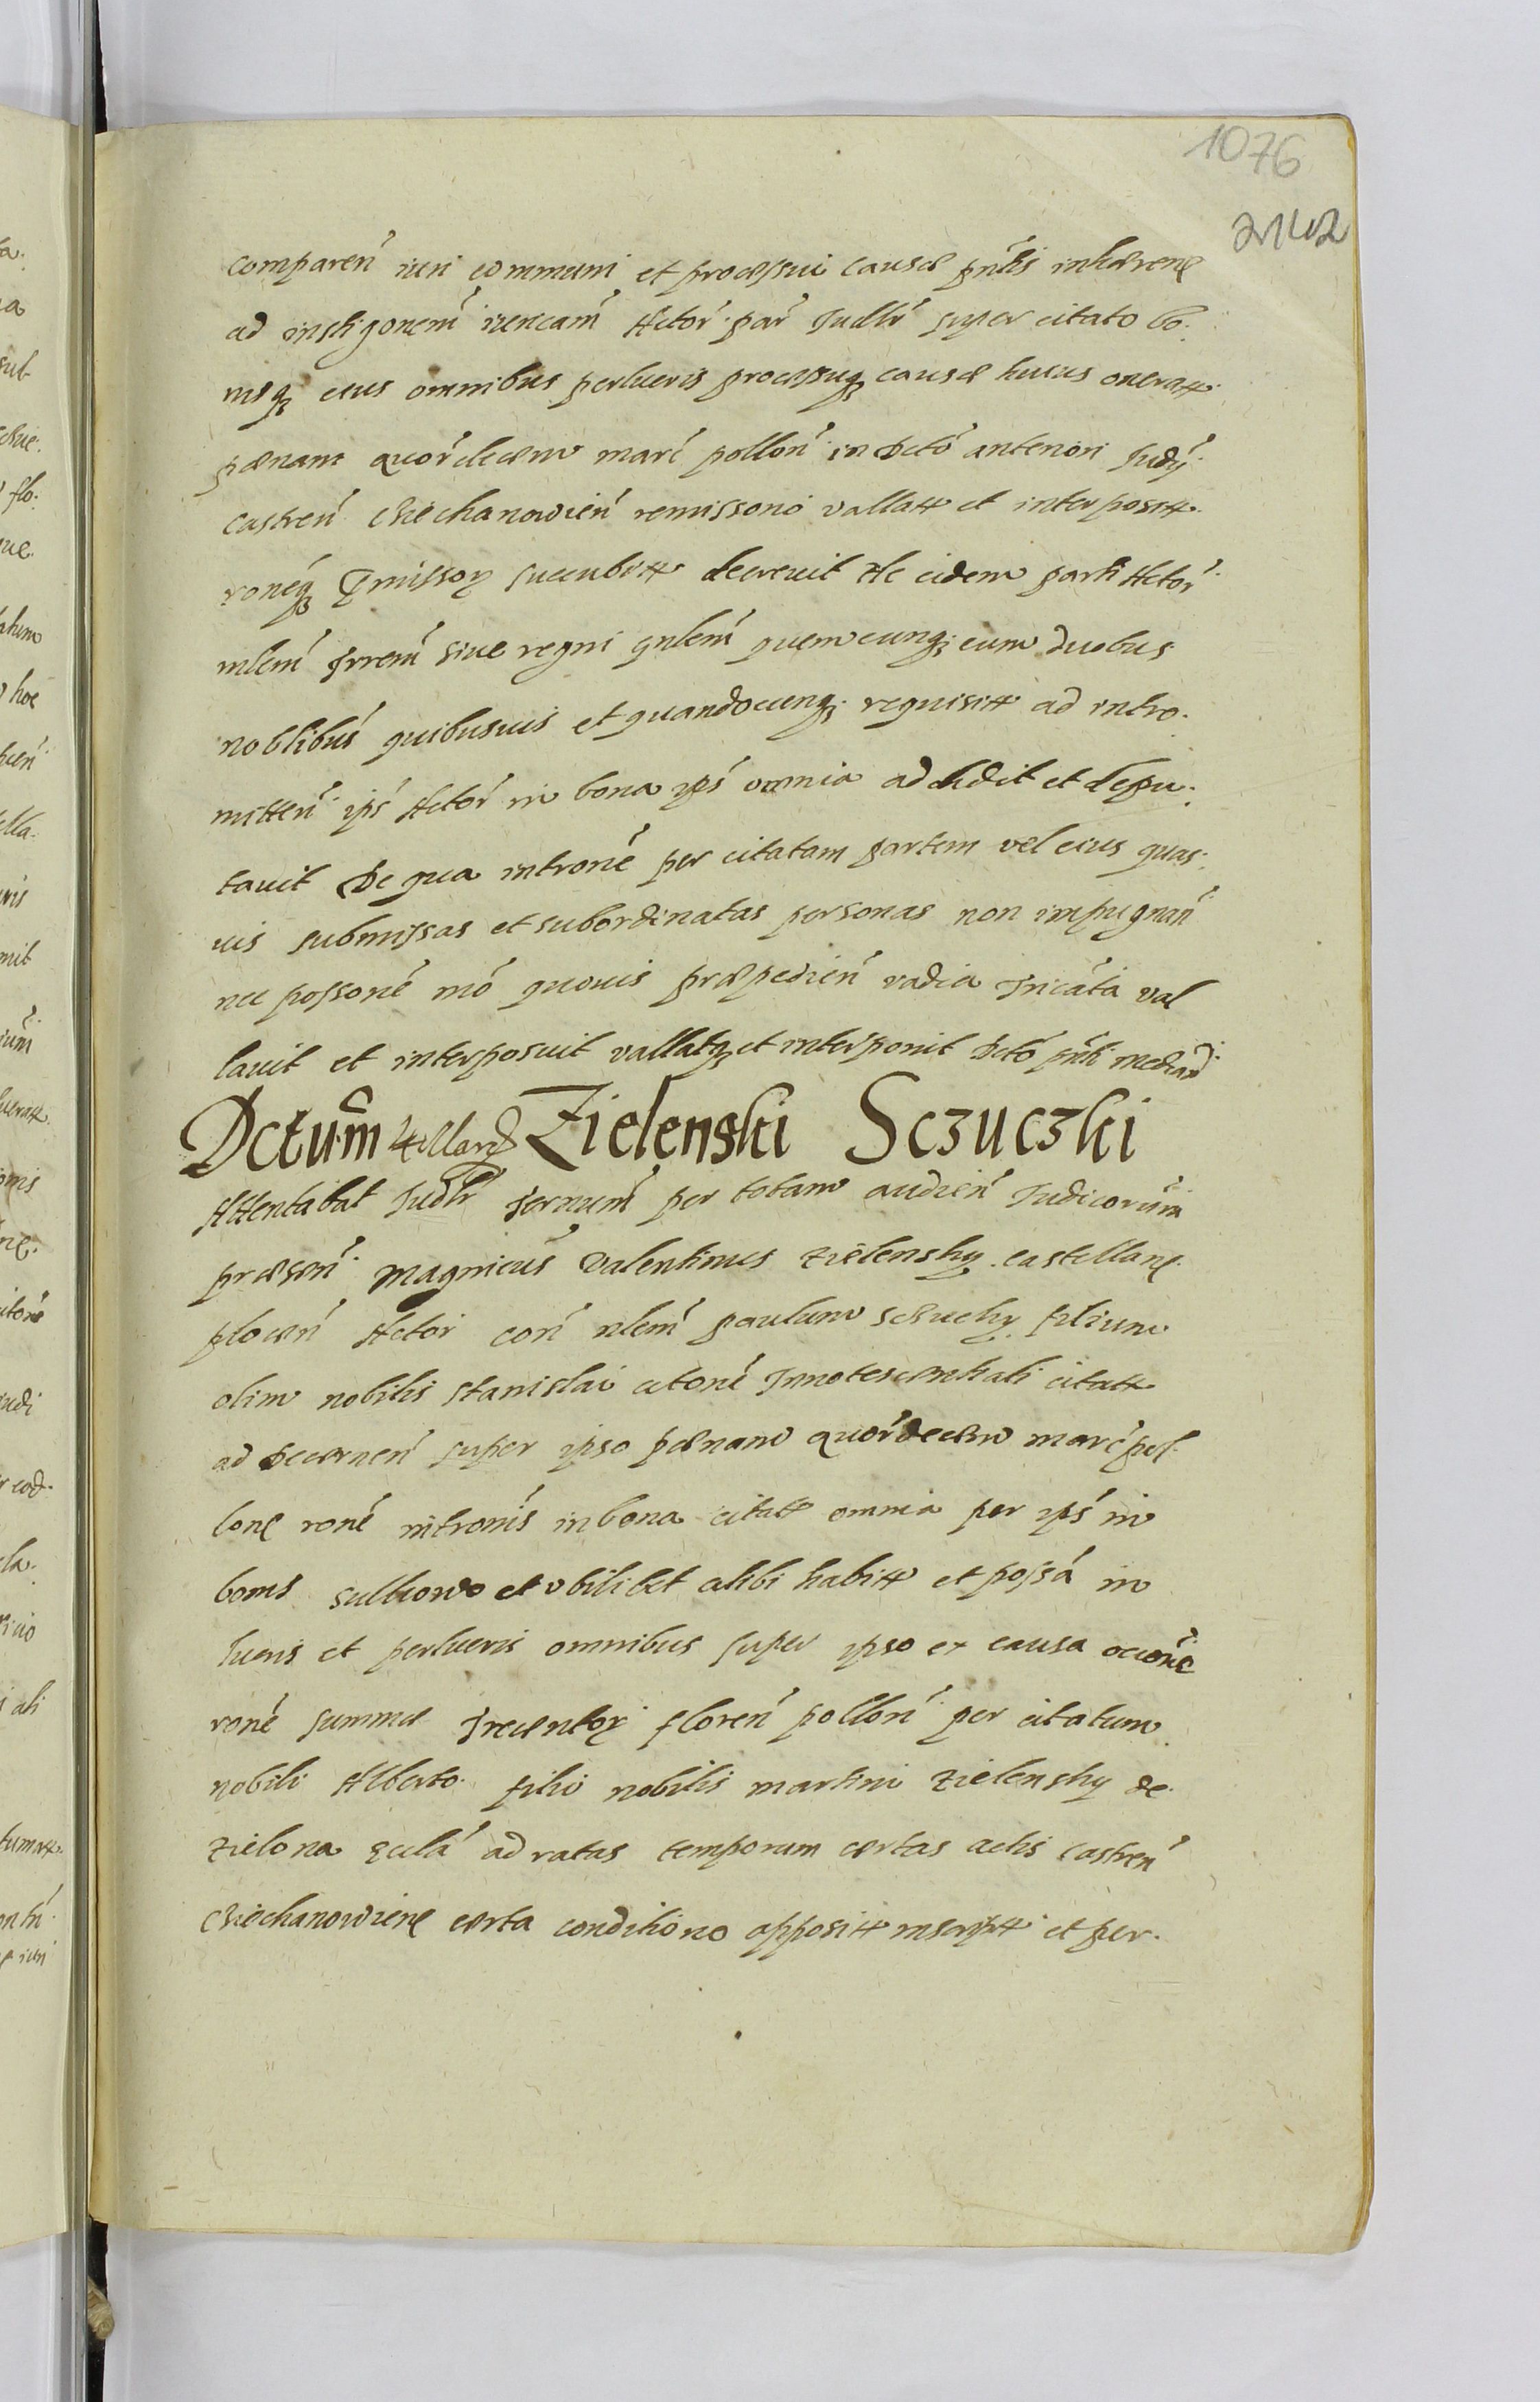 1076
comparen iuri communi et processui causæ pntis inhæren
ad instigonem iuricam Actor par Judtr super citato bo.
nisq eius omnibus perlucris processuq causæ huius onerat
pænam quordecem marc pollon in Dcto anteriori Judy
castren Ciechanowien remissono vallat et interposit.
roneq præmissor succubit decrevit Ac eidem parti Actor
mlem Trrem siue regni gnlem quemcunq cum duobus
noblibus quibusuis et quandocunq requisit ad intro.
mitten ips Actor in bona ips omnia addidit et depu.
tauit De qua introne per citatam partem vel eius quas.
uis submissas et subordinatas personas non impugnan
nec possone mo quouis præpedien vadia Tricata val
lauit et interposuit vallatq et interponit Dcto pnti median
Dctum Zielenski Sczuczki
Attentabat Judtr Ternum per totam audien Judiciorum
præsen magnicus Valentinus Zielensky castellan
plocen Actor con nlem paulum filium
olim nobilis Stanislai citone Innotescentiali citat
ad Decernen super ipso pænam quordecem marc pol.
lon rone intronis in bona citat omnia per ips in
bonis et vbilibet alibi habit et possa in
lucris et perlucris omnibus super ipso ex causa
rone summæ Trecentor floren pollon per citatum
nobili Alberto filio nobilis martini Zielensky de
Zielona ad ratas temporum certas actis castren
Ciechanowien certa conditiono apposit inscript et per.